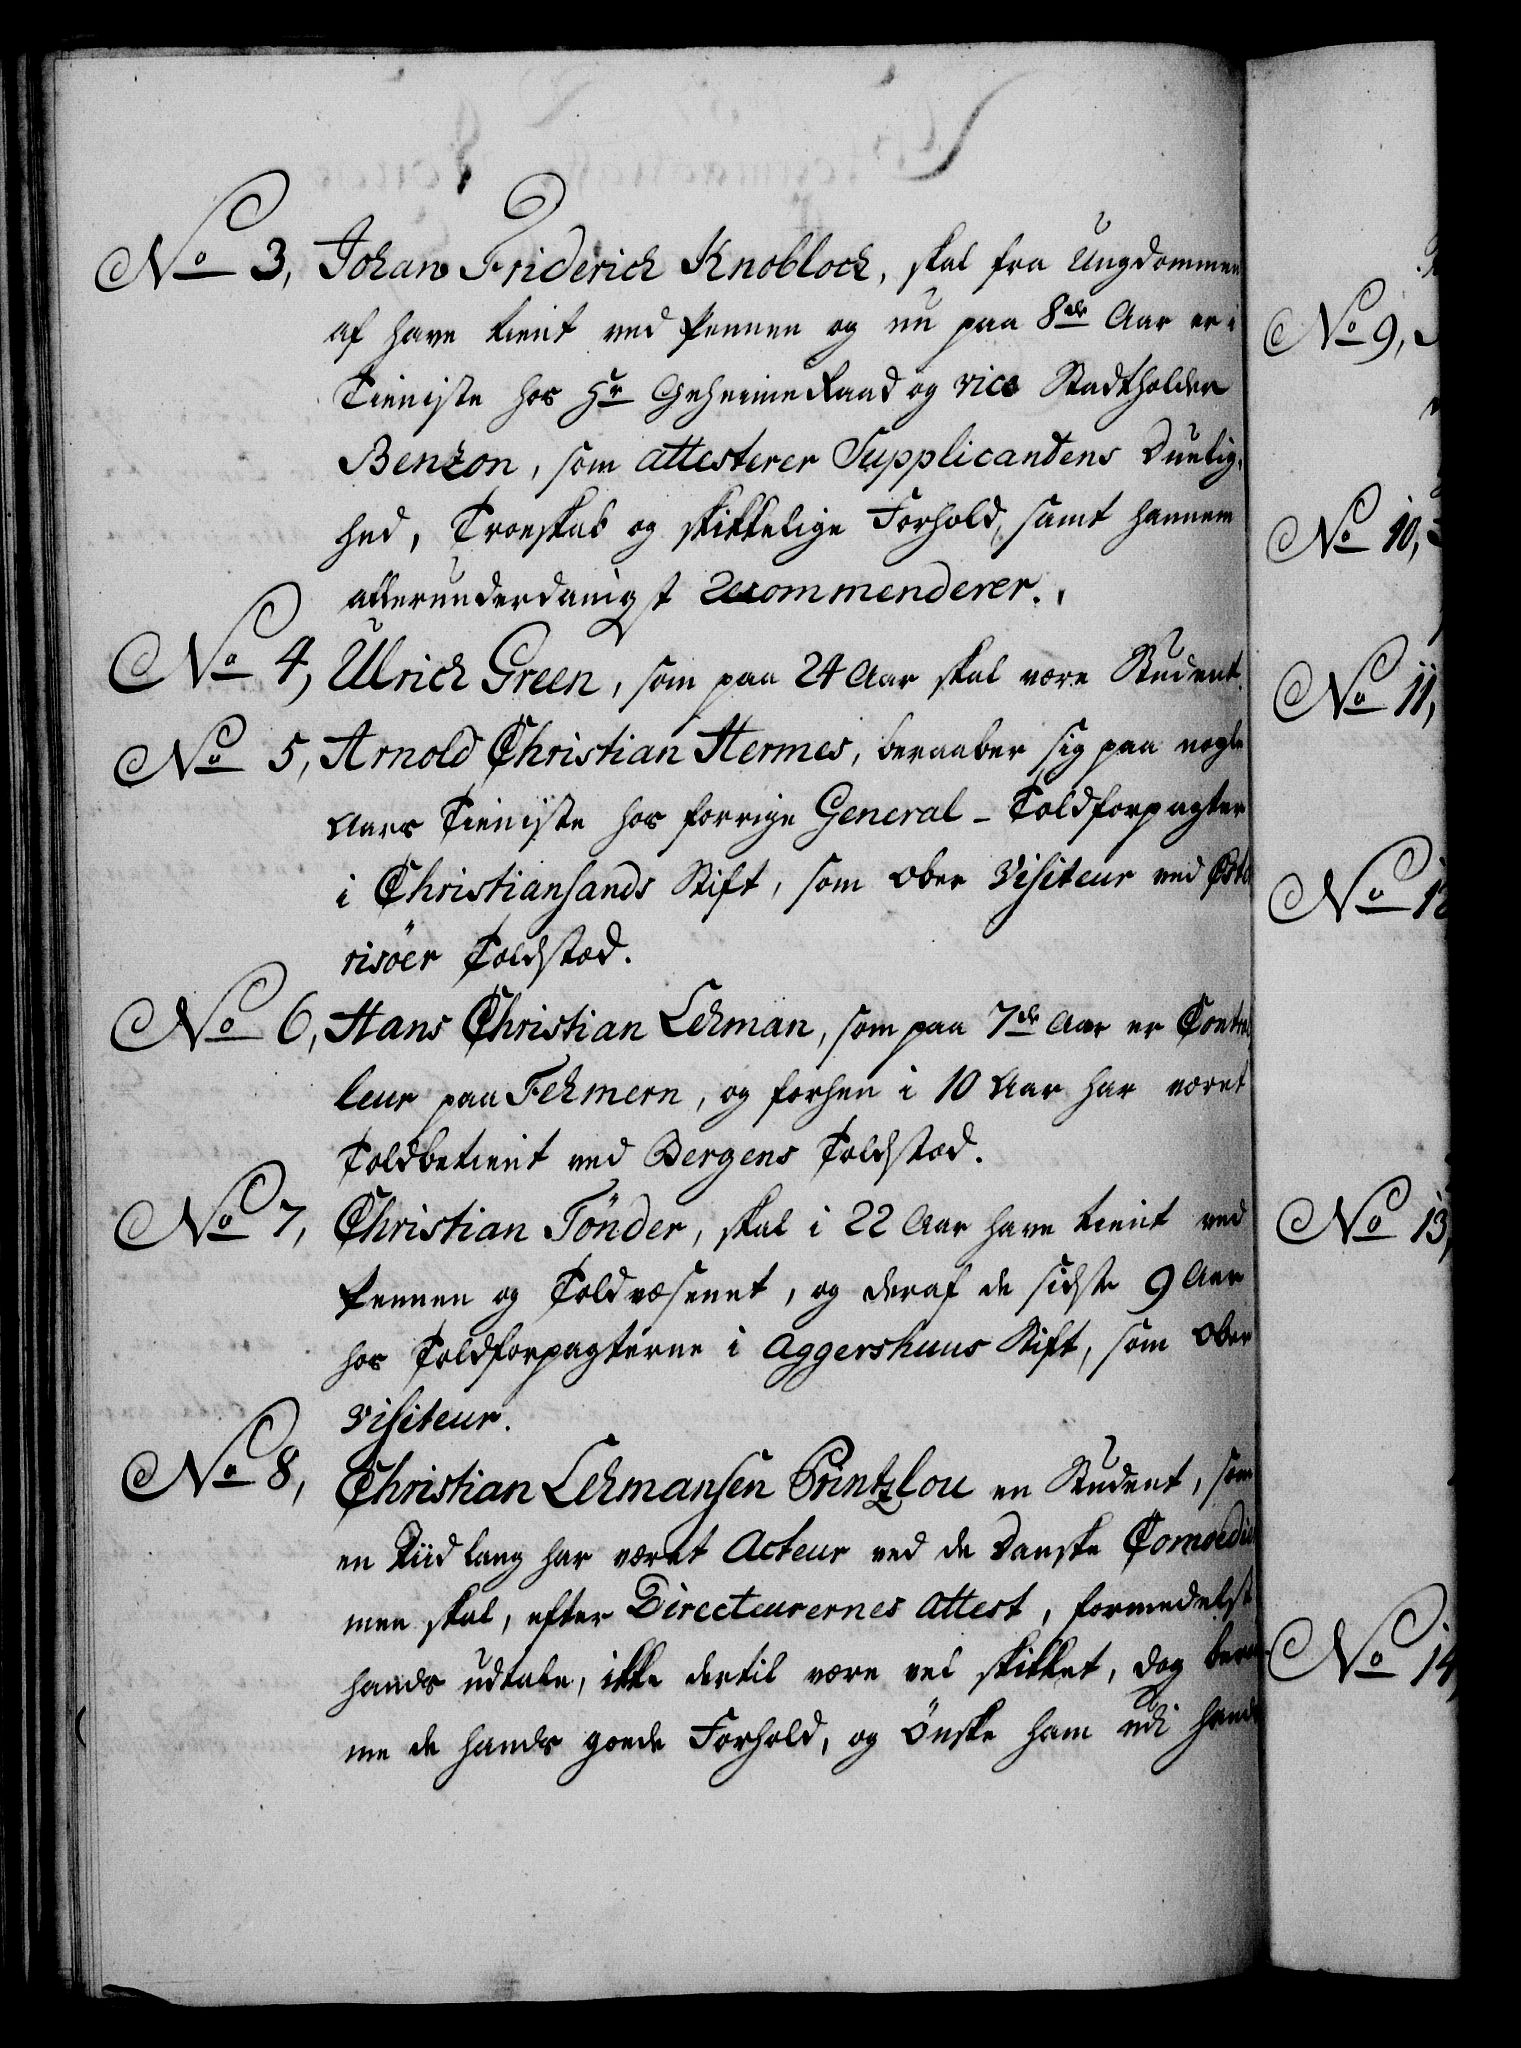 No 3, Johan Friderich Knobloch, skal fra Ungdommen
af have tient ved Pennen og nu paa 8de Aar er i
Tieniste hos Hr GeheimeRaad og vice Stadtholder
Benzon, som attesterer Supplicandens Duelig-
hed, Troeskab og skikkelige Forhold, samt hannem
allerunderdanigst recommenderer.
No 4, Ulrich Green, som paa 24 Aar skal være Student.
No 5, Arnold Christian Hermes, beraaber sig paa nogle
Aars Tieniste hos forrige General-Toldforpagter
i Christiansands Stift, som Ober Visiteur ved Øste
risöer Toldstæd.
No 6, Hans Christian Lehman, som paa 7de Aar er Contro
leur paa Fehmern, og forhen i 10 Aar har været
Toldbetient ved Bergens Toldstæd.
No 7, Christian Tönder, skal i 22 Aar have tient ved
Pennen og Toldvæsenet, og deraf de sidste 9 Aar
hos Toldforpagterne i Aggershuus Stift, som Ober
Visiteur.
No 8, Christian Lehmansen Printzlou en Student, som
en Tiid lang har været Acteur ved de Danske Comoedie
men skal, efter Directeurernes Attest, formedelst
hands udtale, ikke dertil være vel skikket, dog berøm
me de hands goede Forhold, og Önske ham udi hands
No 9,
No 10,
No 11,
No 12
No 13,
No 14,